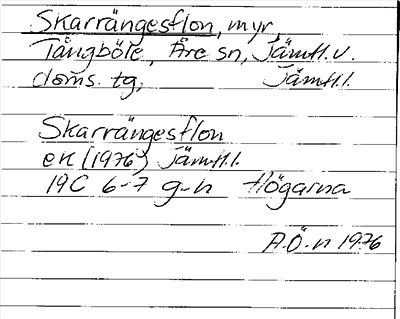 Skarrängesflon, myr,
Tångböle, Åre sn, Jämtl.v.
doms. tg, Jämtl.l.
Skarrängesflon
ek (1976) Jämtl.l.
19C 6-7 g-h Högarna
A.Ö-n 1976